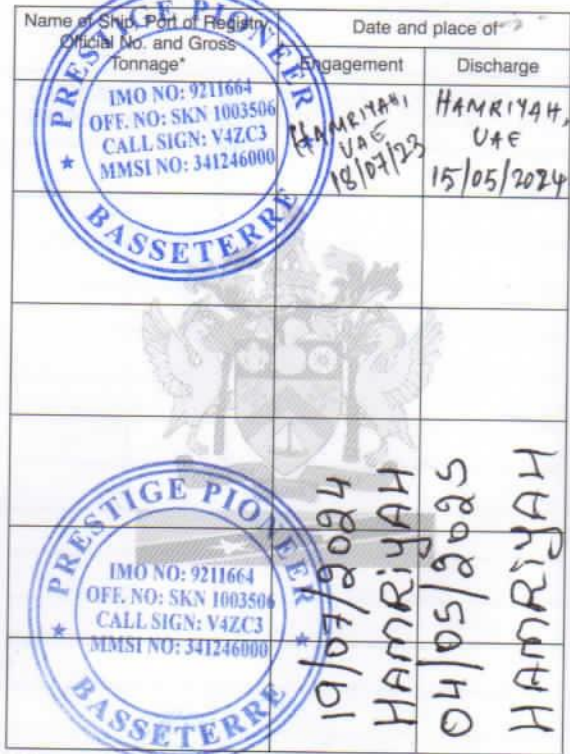 Name of Ship, Port of Registry
Official No. and Gross
Tonnage*
Date and place of
Engagement
Discharge
PRESTIGE PIONEER
IMO NO: 9211664
OFF. NO: SKN 1003506
CALL SIGN: V4ZC3
MMSI NO: 341246000
BASSETERRE
HAMRIYAH,
UAE
18/07/23
HAMRIYAH,
UAE
15/05/2024
PRESTIGE PIONEER
IMO NO: 9211664
OFF. NO: SKN 1003506
CALL SIGN: V4ZC3
MMSI NO: 341246000
BASSETERRE
19/07/2024
HAMRIYAH
04/05/2025
HAMRIYAH